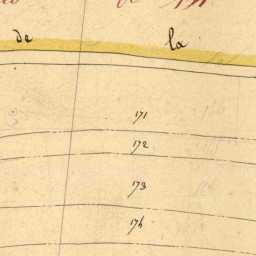 de la
171
172
173
174